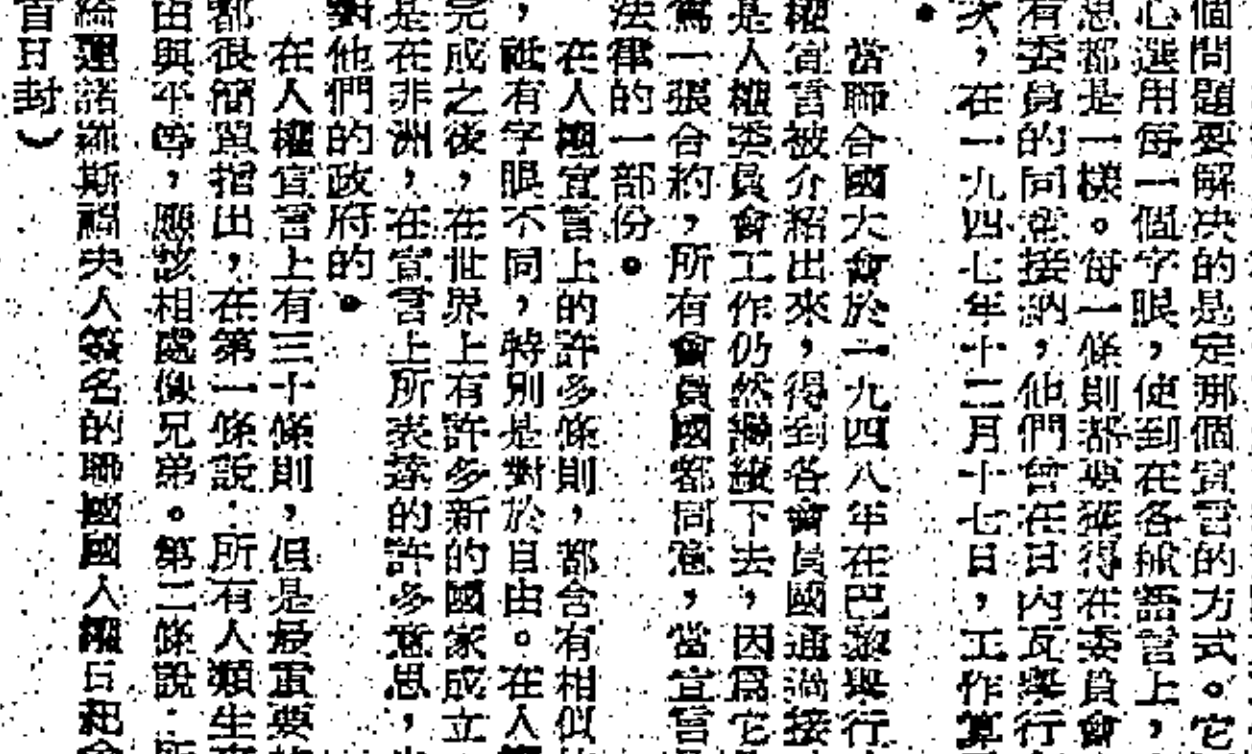 個問題要解決的是定那個宣言的方式。它
心選用每一個字眼,使到在各種語言上,
思都是一樣。每一條則都要獲得在委員會
有委員的同意接納,他們曾在日內瓦舉行
次,在一九四七年十二月十七日,工作算
。
當聯合國大會於一九四八年在巴黎舉行
權宣言被介紹出來,得到各會員國通過接
是人權委員會工作仍然繼續下去,因爲它
爲一張合約,所有會員國都同意,當宣言
法律的一部份。
在人權宣言上的許多條則,都含有相似
,祗有字眼不同,特別是對於自由。在人
完成之後,在世界上有許多新的國家成立
是在非洲,在宣言上所表達的許多意思,
對他們的政府的。
在人權宣言上有三十條則,但是最重要
都很簡單指出,在第一條說:所有人類生
由與平等,應該相處像兄弟。第二條說:所
綸運諾羅斯福夫人簽名的聯國國人權日紀
首日封)